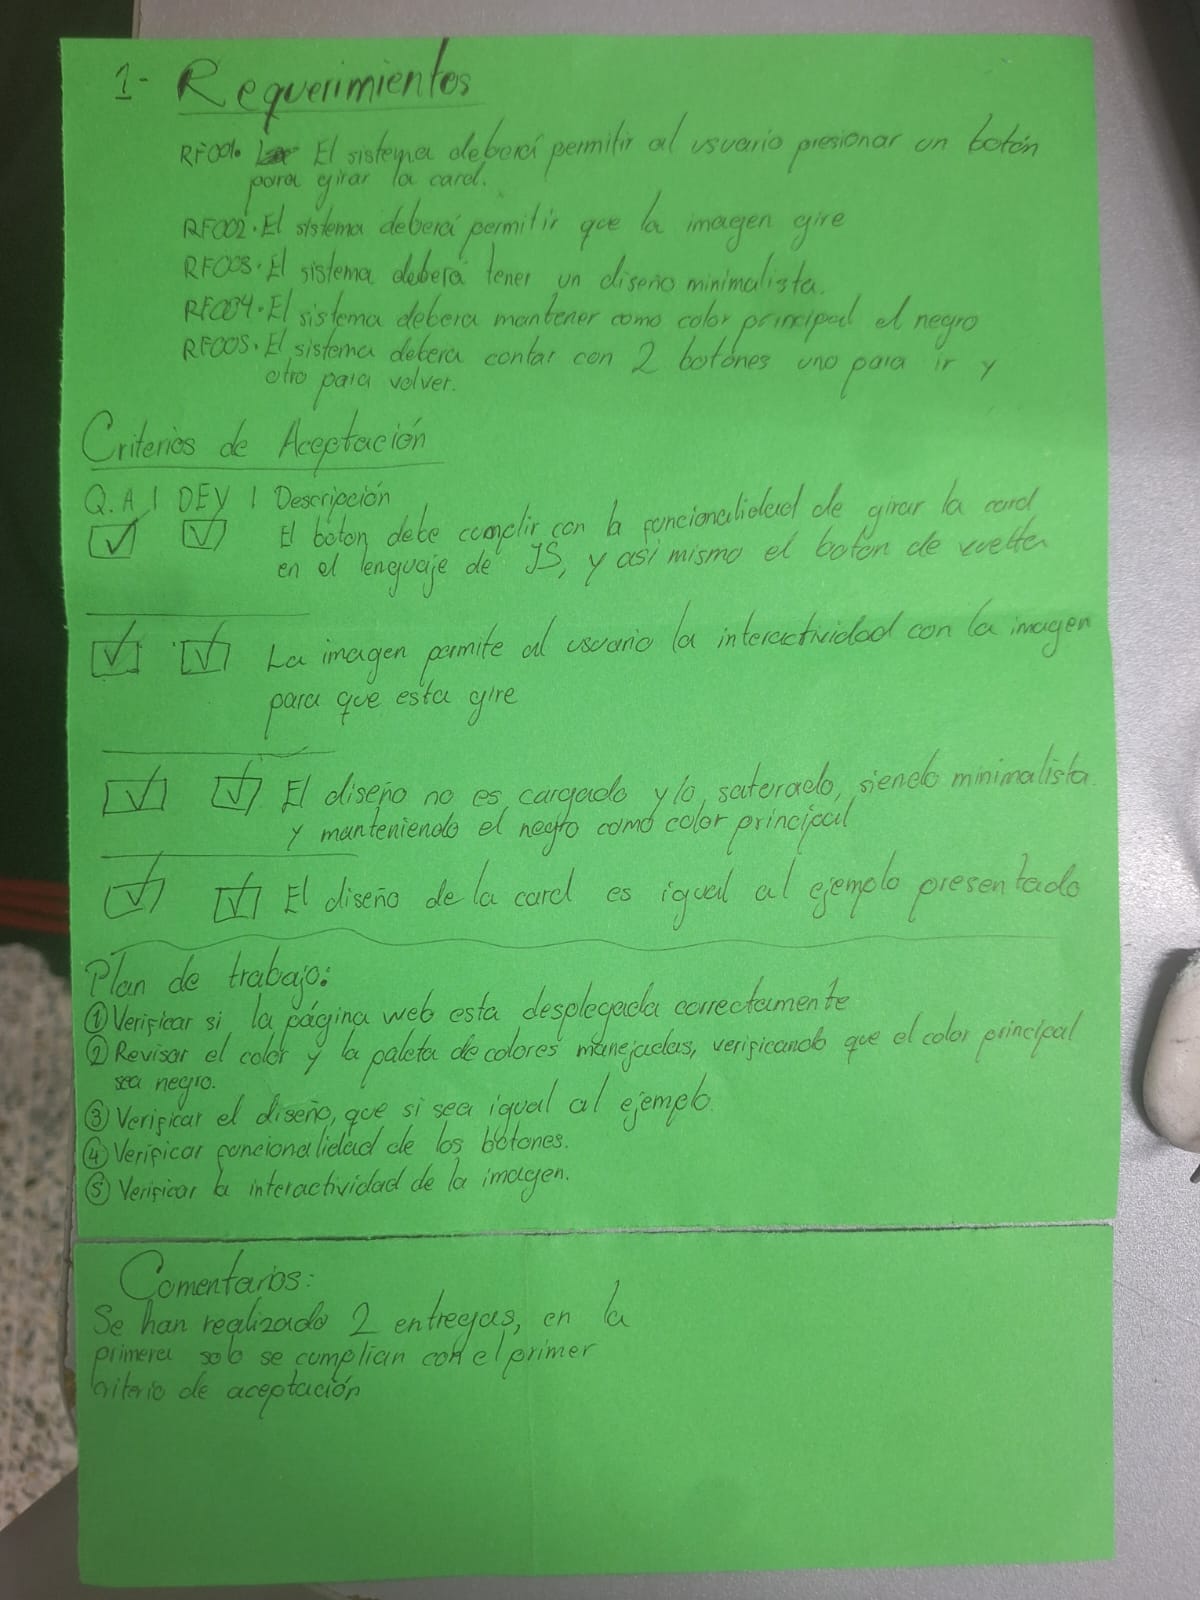 1- Requerimientos
RF001. El sistema deberá permitir al usuario presionar un botón
para girar la card.
RF002. El sistema deberá permitir que la imagen gire
RF003. El sistema deberá tener un diseño minimalista.
RF004. El sistema debera mantener como color principal el negro
RF005. El sistema debera contar con 2 botones uno para ir y
otro para volver.
Criterios de Aceptación
Q.A | DEV | Descripción
El boton debe cumplir con la funcionalidad de girar la card
en el lenguaje de JS, y asi mismo el boton de vuelta
La imagen permite al usuario la interactividad con la imagen
para que esta gire
El diseño no es cargado y/o saturado, siendo minimalista
y manteniendo el negro como color principal
El diseño de la card es igual al ejemplo presentado
Plan de trabajo:
① Verificar si la página web esta desplegada correctamente
② Revisar el color y la paleta de colores manejadas, verificando que el color principal
sea negro.
③ Verificar el diseño, que si sea igual al ejemplo.
④ Verificar funcionalidad de los botones.
⑤ Verificar la interactividad de la imagen.
Comentarios:
Se han realizado 2 entregas, en la
primera solo se cumplian con el primer
criterio de aceptación